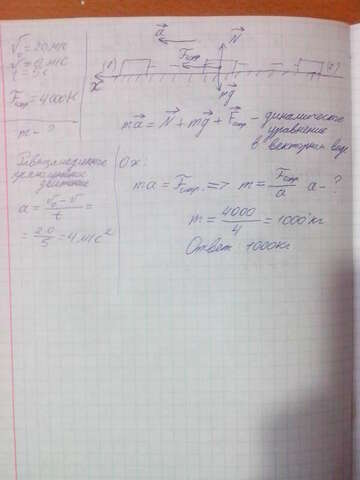 V₀ = 20 м/с
V = 0 м/с
t = 5 с
Fтр. = 4000 Н
m - ?
a
N
(1)
Fтр.
x
mg
ma = N + mg + Fтр - динамическое
уравнение
в векторном виде
Равнозамедленное
прямолинейное
движение
a = V₀ - V / t =
= 20 / 5 = 4 м/с²
Ox:
ma = Fтр. => m = Fтр. / a a - ?
m = 4000 / 4 = 1000 кг
Ответ: 1000 кг